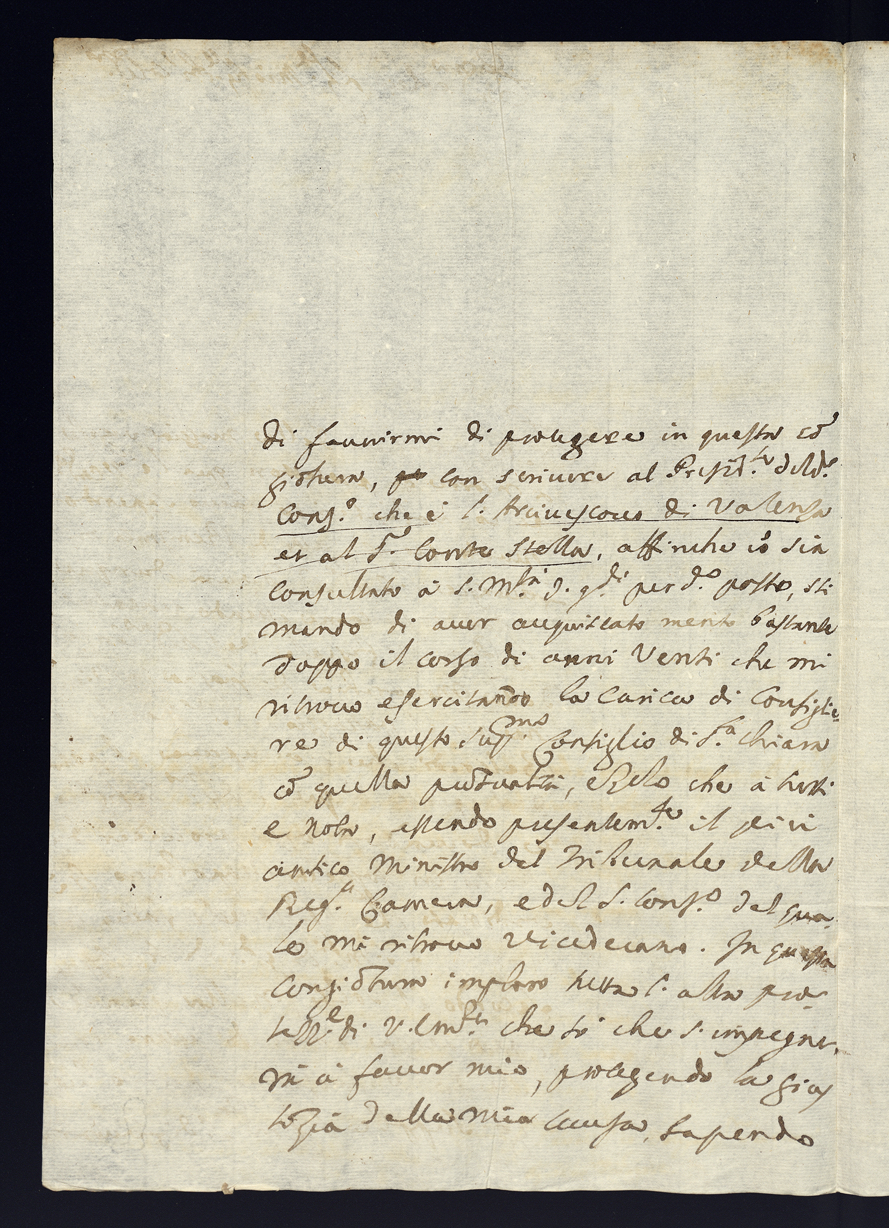 di fauorirmi di protegere in questa cõ
giõtura, con scriuere al Presid.te del d.o
Cons.o che è l'Arciuescouo di Valenza
et al S.r Conte Stella, affinche iò sia
Consultato à S. M.tà perd.o posto, sti
mando di auer acquistato merito bastante
doppo il corso di anni Venti che mi
ritrouo esercitando la Carica di Consiglie-
re di questo Sup.mo Consiglio di S.ta Chiara
cõ quella, e Zelo che à tutti
e noto, essendo presentem.te il più
antico Ministro del Tribunale della
Reg.a Camera, e del S. Cons.o del qua
le mi ritrouo Vicedecano. In questa
Congiõtura imploro tutta l'alta pro-
tezz.e di V. Em.za che sò che s'impegne-
rà à fauor mio, protegendo la gius
tizia della mia causa, sapendo